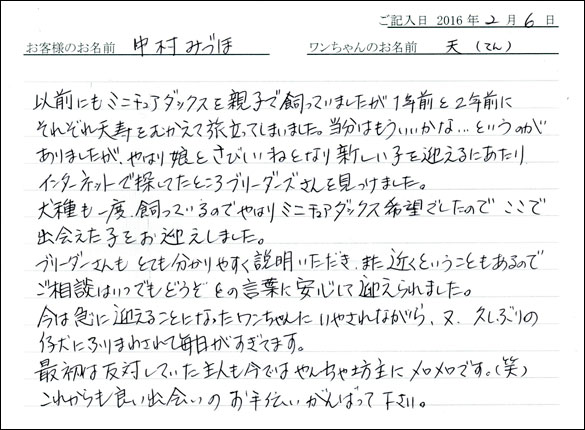 ご記入日 2016 年 2 月 6 日
お客様のお名前 中村 みづほ ワンちゃんのお名前 天 (てん)
以前にもミニチュアダックスを親子で飼っていましたが1年前と2年前に
それぞれ天寿をむかえて旅立ってしまいました。当分はもういいかな…というのが
ありましたが、やはり娘とさびしいねとなり新しい子を迎えるにあたり
インターネットで探してたところブリーダーズさんを見つけました。
犬種も一度、飼っているのでやはりミニチュアダックス希望でしたのでここで
出会えた子をお迎えしました。
ブリーダーさんもとても分かりやすく説明いただき、また近くということもあるので
ご相談はいつでもどうぞとの言葉に安心して迎えられました。
今は急に迎えることになったワンちゃんにいやされながら、又、久しぶりの
仔犬にふりまわされて毎日がすぎてます。
最初は反対していた主人も今ではやんちゃ坊主にメロメロです。(笑)
これからも良い出会いのお手伝いがんばって下さい。